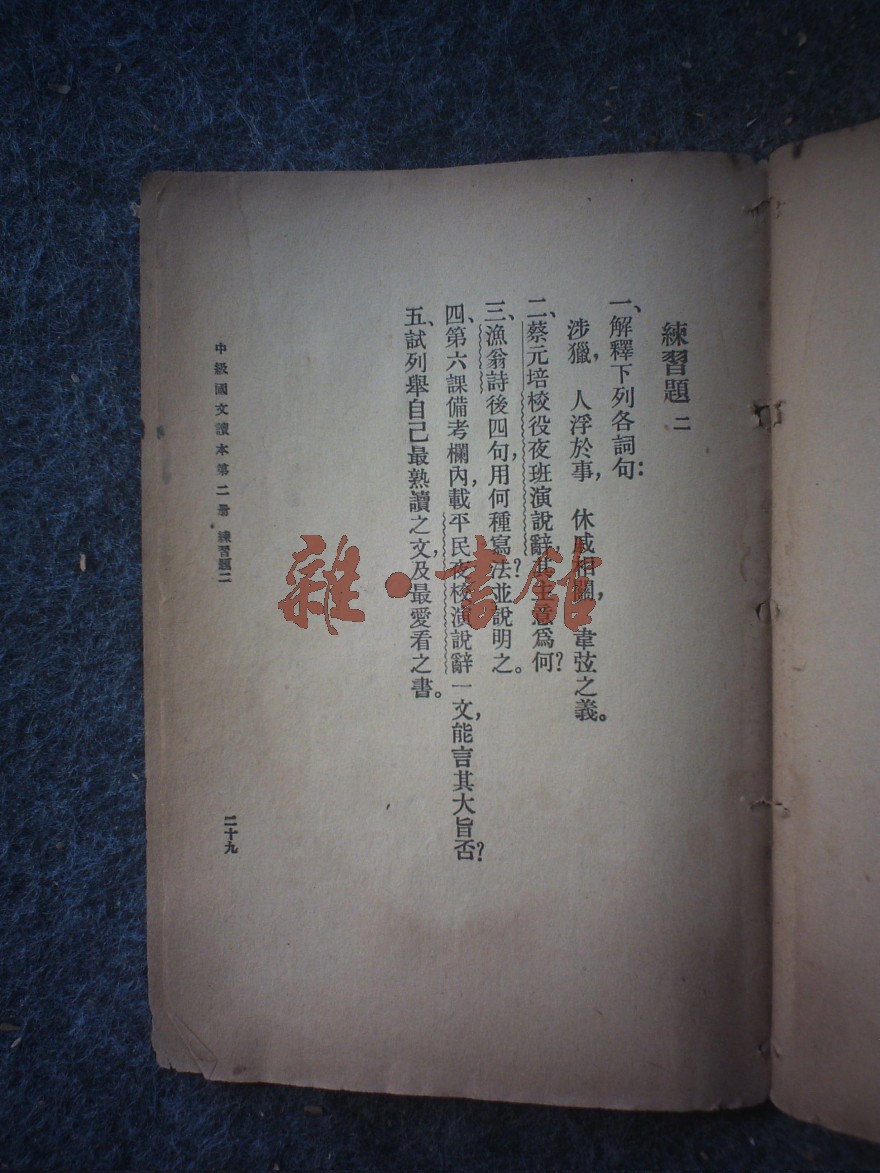 練習題 二
一、解釋下列各詞句：
涉獵，人浮於事，休戚相關，韋弦之義。
二、蔡元培校役夜班演說辭，其主意爲何？
三、漁翁詩後四句，用何種寫法？並說明之。
四、第六課備考欄內，載平民夜校演說辭一文，能言其大旨否？
五、試列舉自己最熟讀之文，及最愛看之書。
中級國文讀本第二册 練習題二
二十九
雜·書館